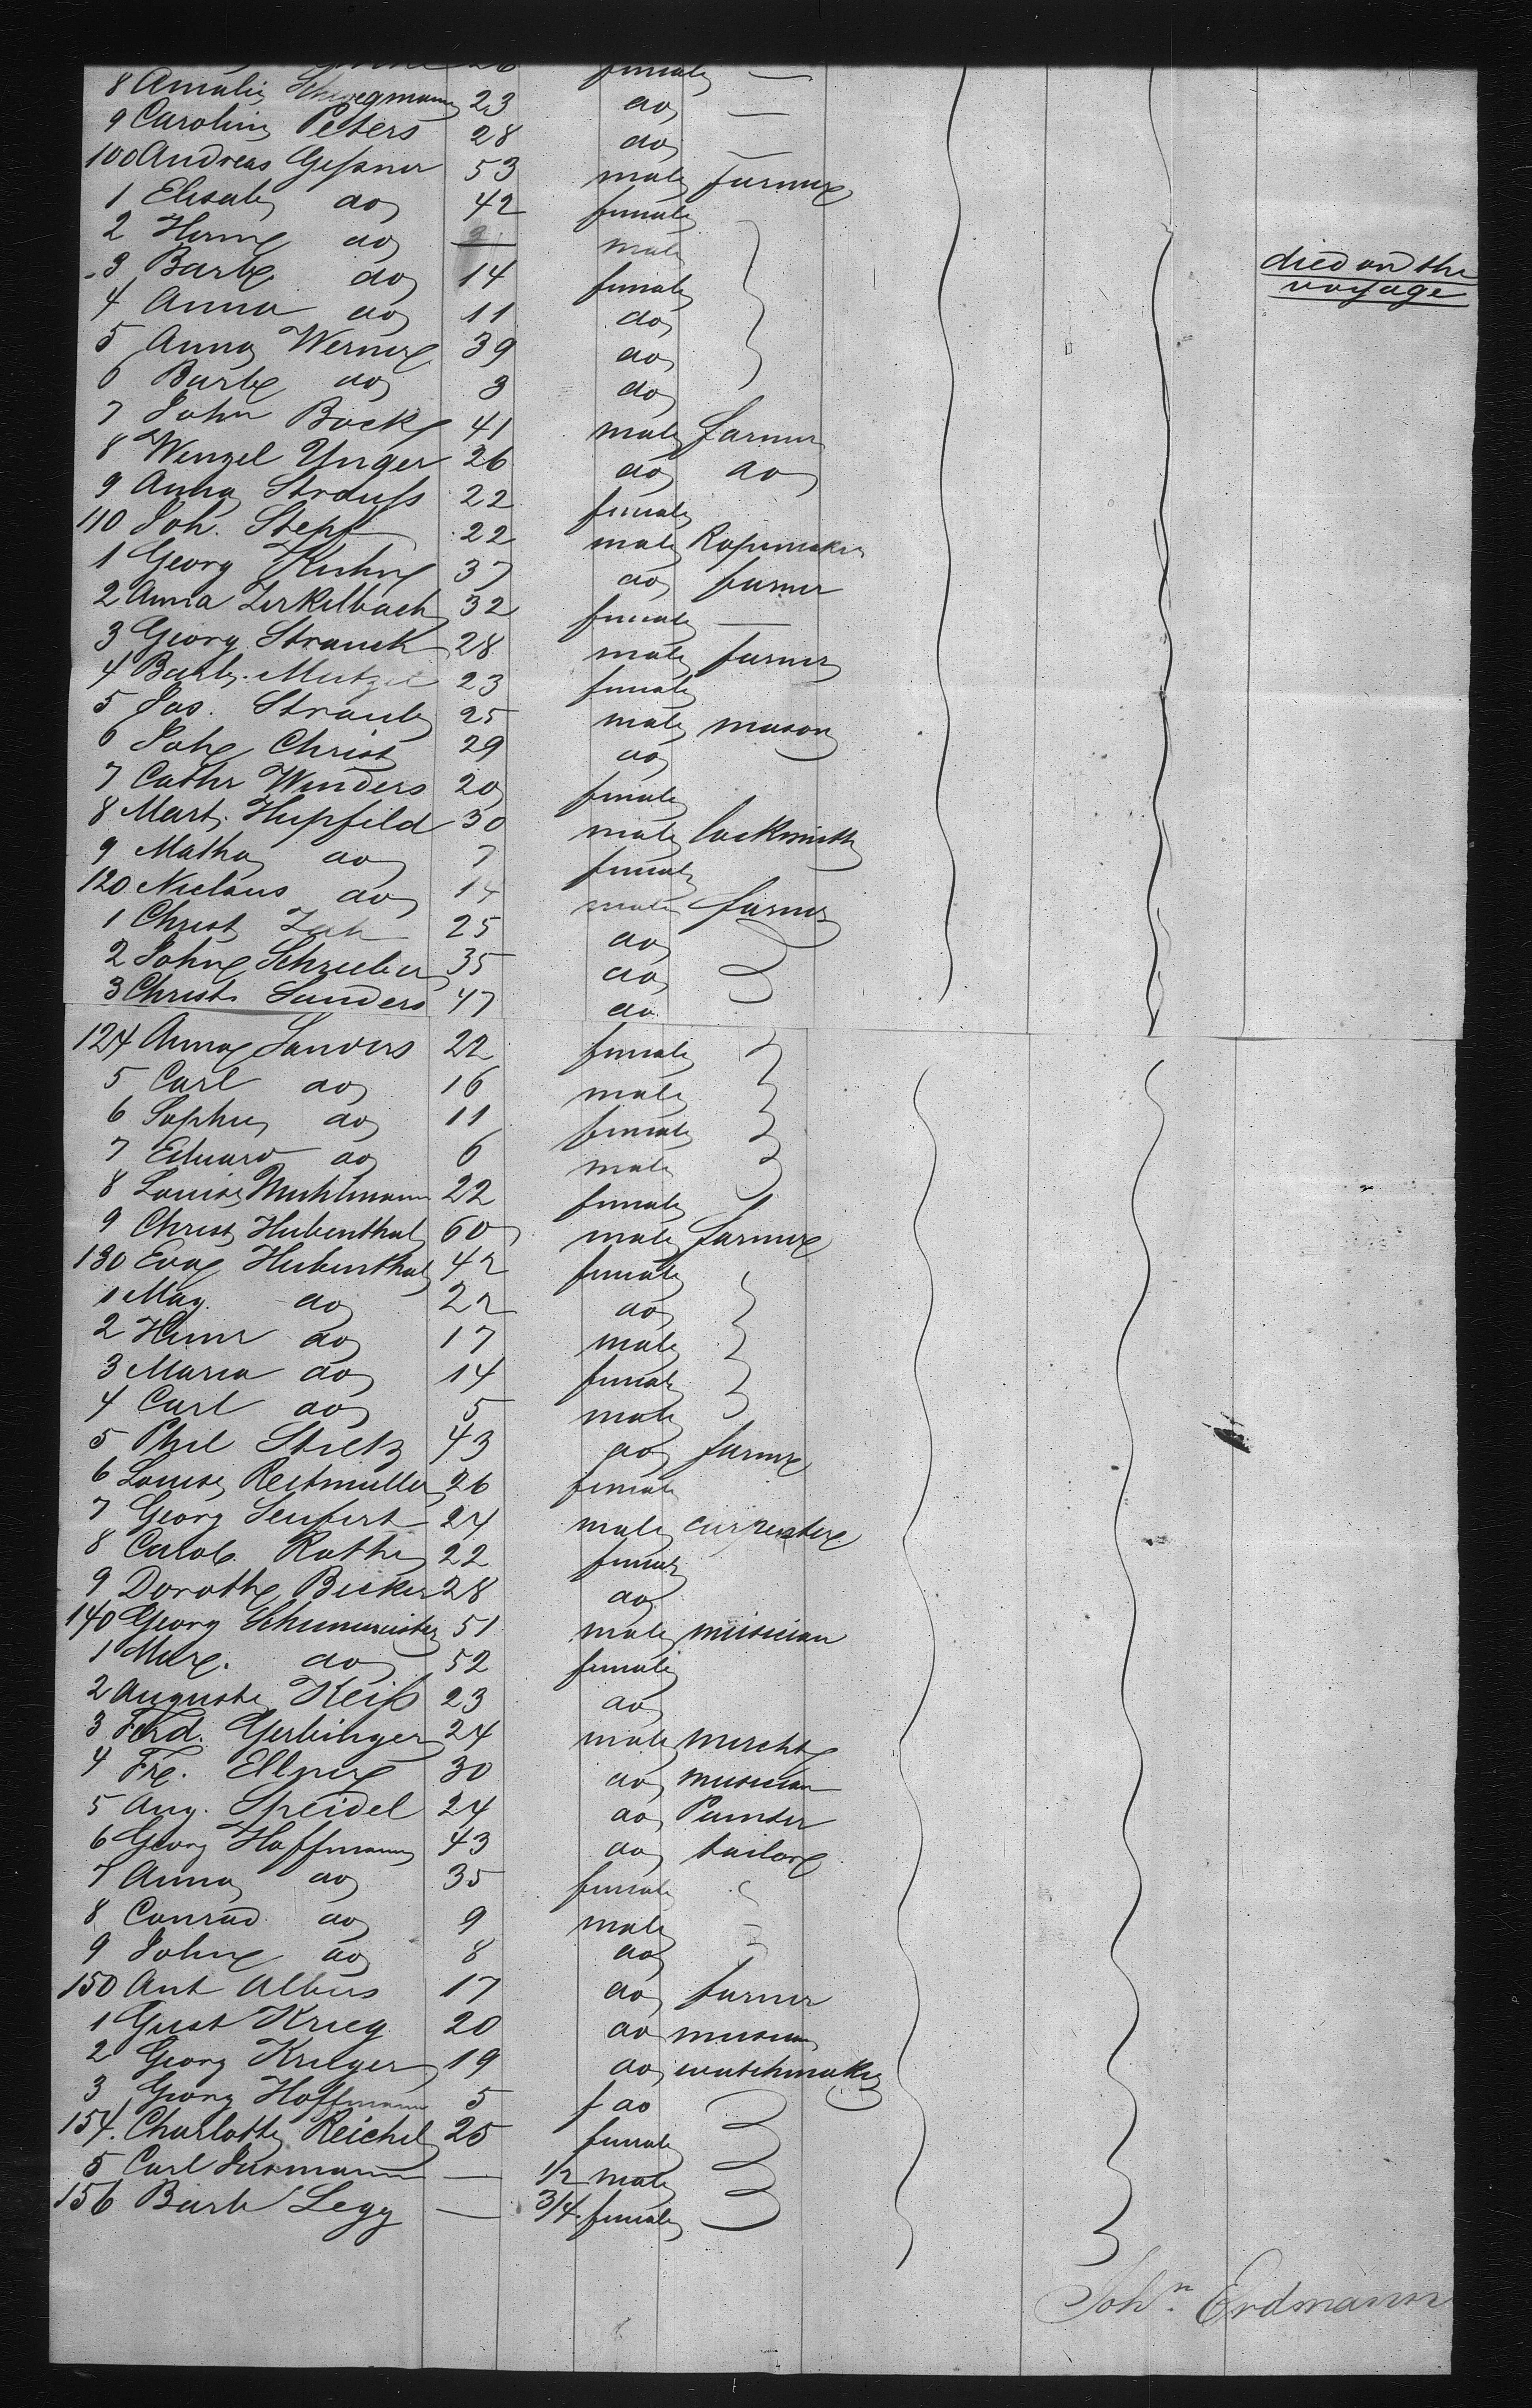 26 female —
8 Amalie 23 do —
9 Caroline Peters 28 do —
100 Andreas Geßner 53 male farmer
1 Elisabe do 42 female
2 Herm do male
3 Barb do 14 female died on the
voyage
4 Anna do 11 do
5 Anna Werner 39 do
6 Barb do 3 do
7 John Bock 41 male farmer
8 Wenzel Unger 26 do do
9 Anna Strauß 22 female
110 Joh. Stepf 22 male Ropemaker
1 Georg Kuhn 37 do farmer
2 Anna Zirkelbach 32 female —
3 Georg Strauch 28 male farmer
4 Barb. Mutzel 23 female
5 Jos. Straub 25 male mason
6 Joh Christ 29 do
7 Cathr Winders 20 female
8 Mart. Hupfild 30 male locksmith
9 Matha do 7 female
120 Niclaus do 14 male farmer
1 Christ Zah 25 do
2 John Schreiber 35 do
3 Christ. Sanders 47 do
124 Anna Sanders 22 female
5 Carl do 16 male
6 Sophie do 11 female
7 Eduard do 6 male
8 Louise Muhlmann 22 female
9 Christ Hubenthal 60 male farmer
130 Eva Hubenthal 42 female
1 Mag. do 22 do
2 Heinr do 17 male
3 Maria do 14 female
4 Carl do 5 male
5 Phil Stietz 43 do farmer
6 Louise Reitmuller 26 female
7 Georg Seufert 24 male carpenter
8 Carol. Rothe 22 female
9 Doroth Becker 28 do
140 Georg Schunmeister 51 male musician
1 Marg. do 52 female
2 Auguste Keiß 23 do
3 Ferd. Gerbinger 24 male mercht
4 Fr. Ellner 30 do musician
5 Aug. Speidel 24 do Painter
6 Georg Hoffmann 43 do tailor
7 Anna do 35 female
8 Conrad do 9 male
9 John do 8 do
150 Ant Albers 17 do farmer
1 Gust Krieg 20 do
2 Georg Krieger 19 do watchmaker
3 Georg Hoffmann 5 f do
154. Charlotte Reichel 25 female
5 Carl — 1/2 male
156 Barb Legg — 3/4 female
Joh<sup>n</sup>. Erdmann